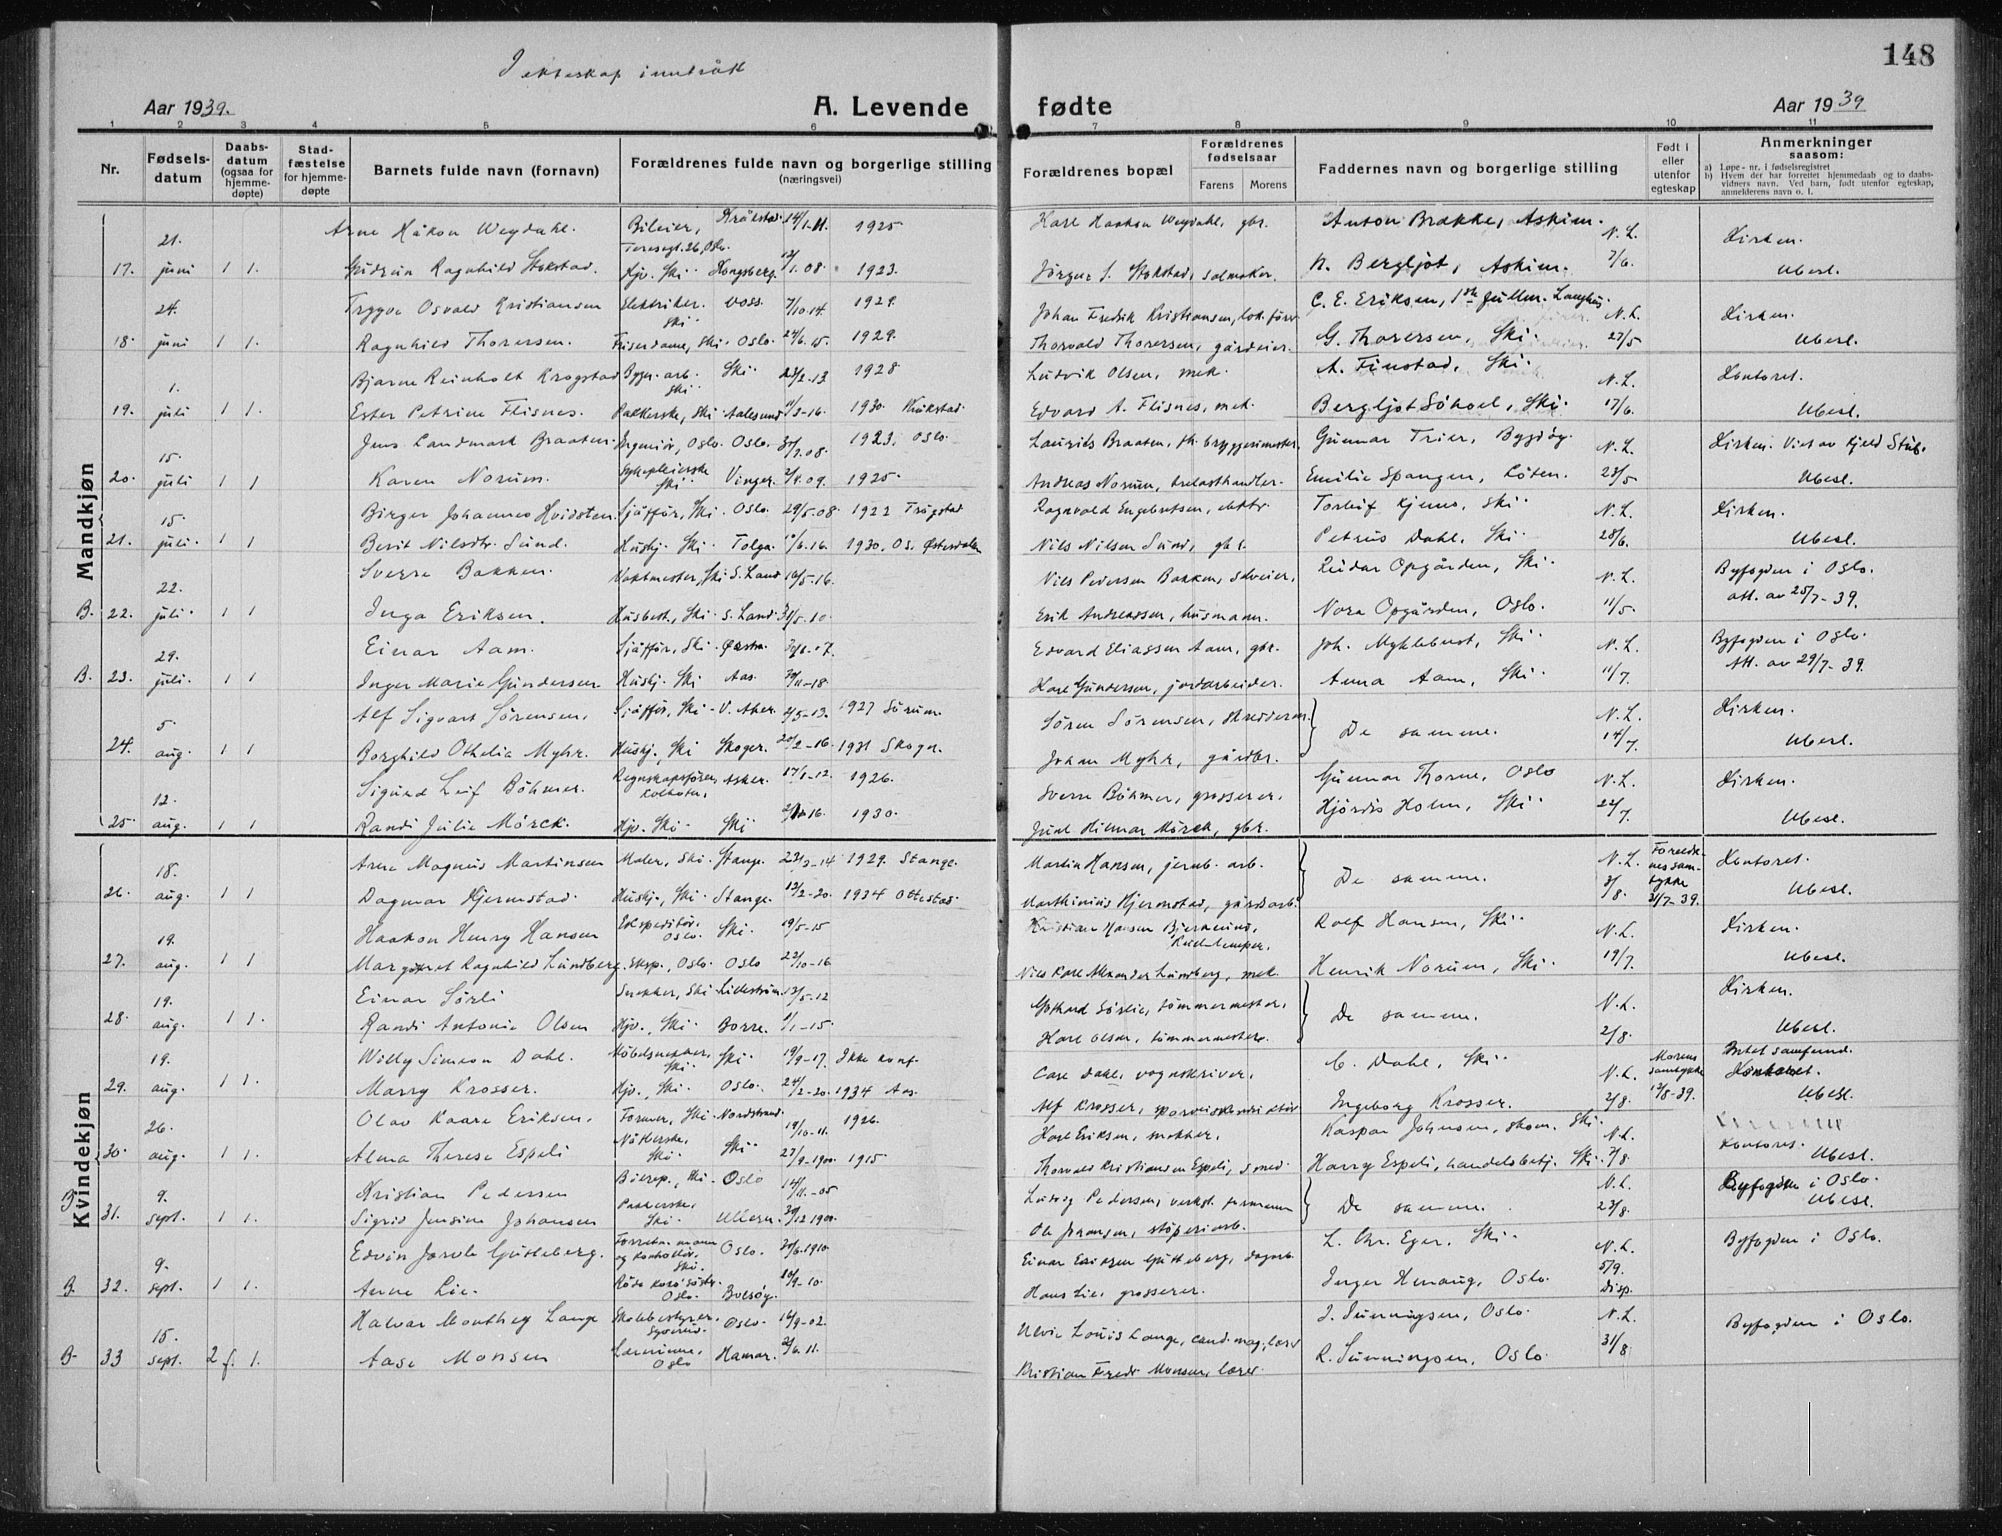 148
I ekteskap inntrådt
Aar 1939.
A. Levende fødte
Aar 1939
1 2 3 4 5 6 7 8 9 10 11
Nr.
Fødsels-datum
Daabs-datum (ogsaa for hjemme-døpte)
Stad-fæstelse for hjemme-døpte
Barnets fulde navn (fornavn)
Forældrenes fulde navn og borgerlige stilling (næringsvei)
Forældrenes bopæl
Forældrenes fødselsaar
Farens Morens
Faddernes navn og borgerlige stilling
Født i eller utenfor egteskap
Anmerkninger saasom:
a) Løpe-nr. i fødselsregistret
b) Hvem der har forrettet hjemmedaab og to daabs-vidners navn. Ved barn, født utenfor egteskap, anmelderens navn o. l.
Mandkjøn
Kvindekjøn
21. Arne Håkon Weydahl. Bileier, Kråkstad 14/1-11 1925 Karl Haakon Weydahl, gbr. Anton Brække, Askim. N.L. Kirken.
17. juni 1 1. Gudrun Ragnhild Stokstad. Hjv. Ski Kongsberg 1.08. 1923. Jørgen S. Stokstad, salmaker. N. Bergljot, Askim. 7/6. Ubesl.
24. Trygve Osvald Kristiansen Elektriker Ski Voss 7/10-14. 1929. Johan Fredrik Kristiansen, lok.fører C. E. Eriksen, Langhus. N.L. Kirken.
18 juni 1 1. Ragnhild Thoresen. Friserdame, Ski. Oslo. 24/6.15. 1929. Thorvald Thoresen, gårdeier. G. Thoresen, Ski. 27/5 Ubesl.
1. Bjarne Reinholt Krogstad Bygn.arb. Ski Ski 23/2-13 1928 Ludvik Olsen, mek. A. Finstad, Ski. N.L. Kontoret.
19. juli 1 1. Ester Petrine Flisnes. Pakkerske, Ski Aalesund 11/3-16. 1930. Kråkstad Edvard A. Flisnes, mek. Bergljot Søhoel, Ski. 17/6. Ubesl.
15. Jens Landmark Braaten. Ingeniør, Oslo. Oslo. 1923. Oslo. Laurits Braaten, fh. bryggerimester Gunnar Trier, Bygdøy. N.L. Kirken. Viet av Kjeld Stub.
20. juli 1 1 Karen Norum. Sykepleierske Ski Vinger. 2/9.09. 1925. Andreas Norum, trelasthandler. Emilie Spangen, Løten. 23/5 Ubesl.
15. Birger Johannes Hvidsten. Sjåffør, Ski Oslo 29/5.08 1922 Trøgstad Ragnvald Engebretsen, Torleif Kjenno, Ski N.L. Kirken.
21. juli. 1 1 Berit Nilsdtr. Sund. Hushj. Ski Tolga 1/6.16. 1930. Os. Østerdalen Nils Nilsen Sund, gbr. Petrus Dahl, Ski 28/6. Ubesl.
22. Sverre Bakken. Vaktmester, Ski S. Land 16/5-16. Nils Pedersen Bakken, selveier. Reidar Opgården, Ski N.L. Byfogden i Oslo.
B. 22. juli. 1 1 Inga Eriksen. Husbest., Ski S. Land 31/5-10. Erik Andreassen, husmann. Nora Opgården, Oslo. 11/5. att. av 25/7-39.
29. Einar Aam. Sjåffør, Ski Ørsta. Edvard Eliassen Aam, gbr. Joh. Myklebust, Ski. N.L. Byfogden i Oslo.
B. 23. juli. 1 1 Inger Marie Gundersen Hushj. Ski Aas. 30/11-18. Karl Gundersen, jordarbeider. Anna Aam, Ski. 11/7. Att. av 29/7-39.
5 Alf Sigvart Sørensen. Sjåffør, Ski V. Aker 2/5-13. 1927 Sørum. Søren Sørensen, skrædderm. De samme. N.L. Kirken.
24. aug. 1 1 Borghild Othelia Myhr. Hushj., Ski Skoger. 20/2-16. 1931 Skoger. Johan Myhr, gårdbr. 14/7. Ubesl.
12. Sigurd Leif Böhmer. Regnskapsfører, Kolbotn. Asker. 17/1-12. 1926. Sverre Böhmer, grosserer. Gunnar Thorne, Oslo N.L. Kirken.
25 aug. 1 1 Randi Julie Mørck. Hjv. Ski Ski 1930. Juul Hilmar Mørck, gbr. Hjørdis Holm, Ski 22/7. Ubesl.
18. Arne Magnus Martinsen Maler, Ski. Stange. 1929. Stange. Martin Hansen, jernb. arb. De samme. N.L. Foreldrenes samtykke 31/7-39. Kontoret.
26. aug. 1 1 Dagmar Hjermstad. Hushj., Ski Stange. 12/2-20. 1934 Ottestad Marthinius Hjermstad, gårdsarb. 3/8. Ubesl.
19. Haakon Henry Hansen Ekspeditør, Oslo. Ski. 19/5-15 Kristian Hansen Bjerkelund, Rolf Hansen, Ski. N.L. Kirken.
27. aug. 1 1 Margaret Ragnhild Lundberg. Eksp., Oslo. Oslo 22/10-16 Nils Karl Alexander Lundberg, mek. Henrik Norum, Ski 19/7. Ubesl.
19. Einar Sørli Snekker, Ski Lillestrøm 13/5-12 Gothard Sørlie, tømmermester, De samme. N.L. Kirken.
28. aug. 1 1. Randi Antonie Olsen Hjv., Ski Borre. 1/1-15. Karl Olsen, tømmermester. 2/8. Ubesl.
19. Willy Simson Dahl. Møbelsnekker, Ski Ski. 19/9-17. Ikke konf. Carl Dahl, vognskriver, C. Dahl, Ski N.L. Morens samtykke 12/8-39. Intet samfund. Kontoret.
29. aug. 1 1. Marry Krosser. Hjv., Ski. Oslo. 24/2-20. 1934 Aas. Alf Krosser, sporveiskonduktør Ingeborg Krosser. 2/8. Ubesl.
26. Olav Kaare Eriksen. Former, Ski. Nordstrand. 19/10-11. 1926. Karl Eriksen, snekker, Kaspar Johnsen, skom. Ski. N.L. Kontoret.
30. aug. 1 1. Alma Therese Espeli Ski Ski 27/9-1900. 1915 Thorvald Kristiansen Espeli, smed Harry Espeli, handelsbetj. Ski. 7/8. Ubesl.
9. Kristian Pedersen Ski. Oslo 14/11-05 Ludvig Pedersen, verkst. formann De samme. N.L. Byfogden i Oslo.
31. sept. 1 1. Sigrid Jensine Johansen Pakkerske, Ski. Ullern. 30/12 1900. Ole Johansen, støperiarb. 23/8. Ubesl.
9. Edvin Jarvle Gutteberg. Forretn.mann og kontrollør, Ski. Oslo. 1910. Einar Eriksen Gutteberg, dagarb. L. Chr. Eger, Ski. N.L. Byfogden i Oslo.
B. 32. sept. 1 1. Anne Lie. Røde Kors søster Oslo. 10/9-10. Hans Lie, grosserer. Inger Henaug, Oslo. 5/9. Disp.
15. Halvar Monthey Lange Skolebestyrer, Oslo. 16/9-02. Ulvie Louis Lange, cand.mag., lærer J. Sunningsen, Oslo. N.L. Byfogden i Oslo.
B. 33 sept. 2 f. 1. Aase Monsen Lærerinne, Oslo Hamar. 2/6.11. Kristian Fredr Monsen, lærer R. Sunningsen, Oslo. 31/8.